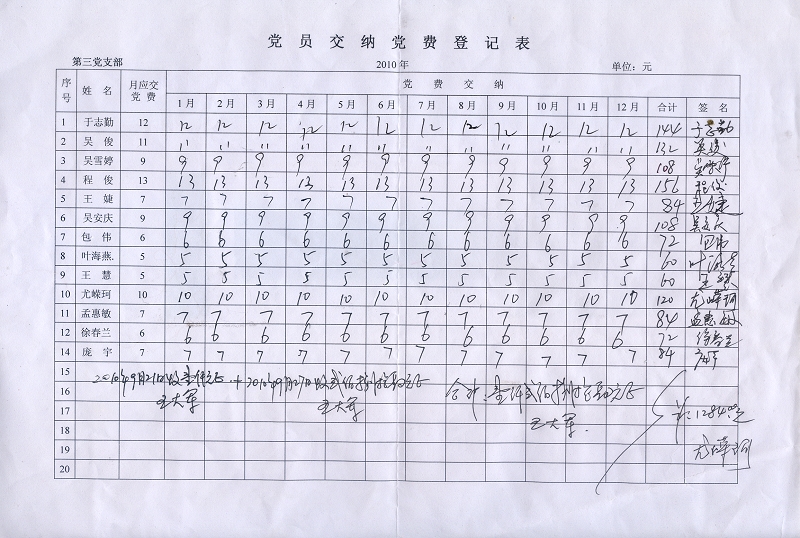 党员交纳党费登记表
第三党支部 2010年 单位：元
序号 姓名 月应交党费 党费交纳
1月 2月 3月 4月 5月 6月 7月 8月 9月 10月 11月 12月 合计 签名
1 于志勤 12 12 12 12 12 12 12 12 12 12 12 12 12 144 于志勤
2 吴俊 11 11 11 11 11 11 11 11 11 11 11 11 11 132 吴俊
3 吴雪婷 9 9 9 9 9 9 9 9 9 9 9 9 9 108 吴雪婷
4 程俊 13 13 13 13 13 13 13 13 13 13 13 13 13 156 程俊
5 王婕 7 7 7 7 7 7 7 7 7 7 7 7 7 84
6 吴安庆 9 9 9 9 9 9 9 9 9 9 9 9 9 108 吴安庆
7 包伟 6 6 6 6 6 6 6 6 6 6 6 6 6 72 包伟
8 叶海燕. 5 5 5 5 5 5 5 5 5 5 5 5 5 60 叶海燕
9 王慧 5 5 5 5 5 5 5 5 5 5 5 5 5 60 王慧
10 尤嵘珂 10 10 10 10 10 10 10 10 10 10 10 10 10 120 尤嵘珂
11 孟惠敏 7 7 7 7 7 7 7 7 7 7 7 7 7 84 孟惠敏
12 徐春兰 6 6 6 6 6 6 6 6 6 6 6 6 6 72 徐春兰
14 庞宇 7 7 7 7 7 7 7 7 7 7 7 7 7 84 庞宇
15 2010年9月21日收壹仟元正 + 2010年9月27日收贰佰捌拾肆元正 合计：壹仟贰佰捌拾肆元正
16 王大军 王大军 1284.元
17 王大军
18 尤嵘珂
19
20